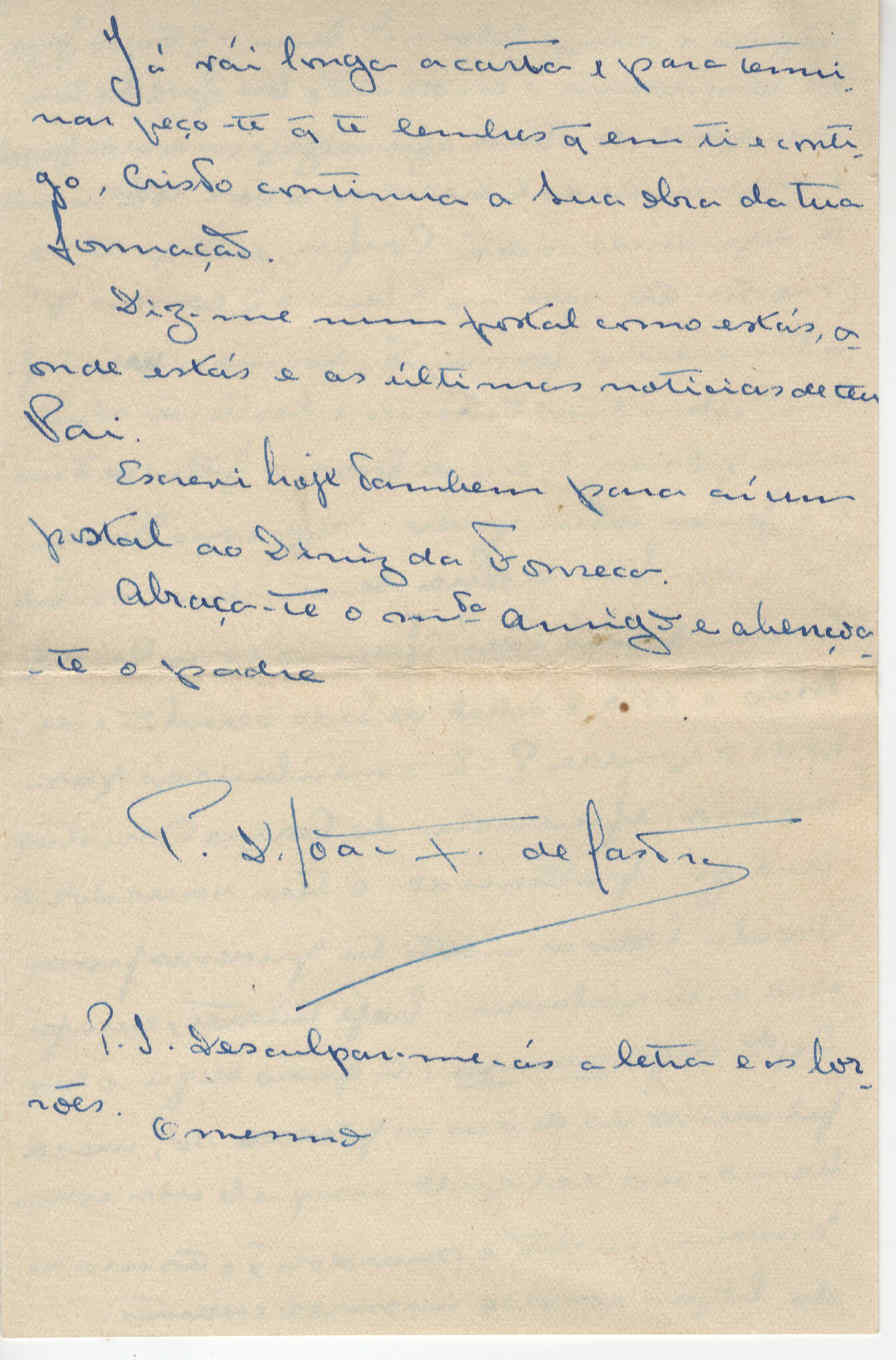 Já vái longa a carta e para termi-
nar peço-te q̃ te lembres q̃ em ti e conti-
go, Cristo continua a Sua obra da tua
formação.
Diz-me num postal como estás, a-
onde estás e as últimas noticias de teu
Pai.
Escrevi hoje tambem para aí um
postal ao Diniz da Fonseca.
Abraça-te o mto amigo e abençoa-
-te o padre
P. D. João X. de Castro
P.S. Desculpar-me-ás a letra e os bor-
rões.
O mesmo